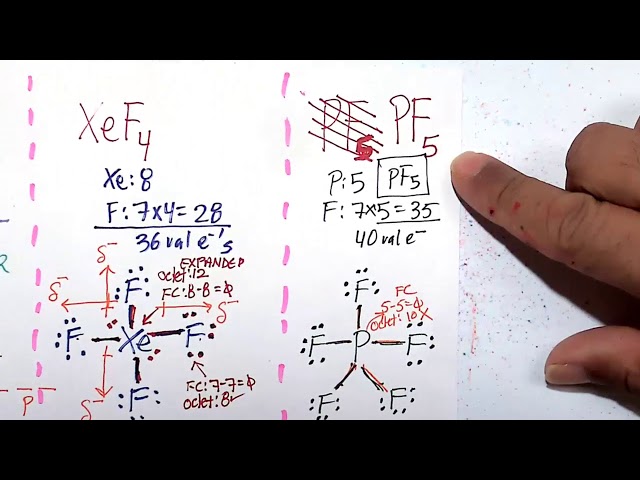 XeF4
Xe: 8
F: 7x4 = 28
36 val e-'s
EXPANDED
octet: 12
FC: 8-8=ϕ
δ-
δ-
δ-
F
F Xe F
F
FC: 7-7=ϕ
octet: 8✓
P
PF5
P: 5 PF5
F: 7x5 = 35
40 val e-
FC
5-5=ϕ
octet: 10 X
F
F P F
F F